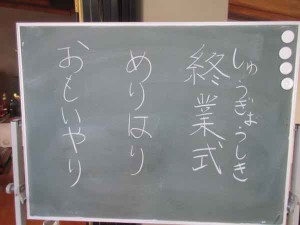 しゅうぎょうしき
終業式
めりはり
おもいやり